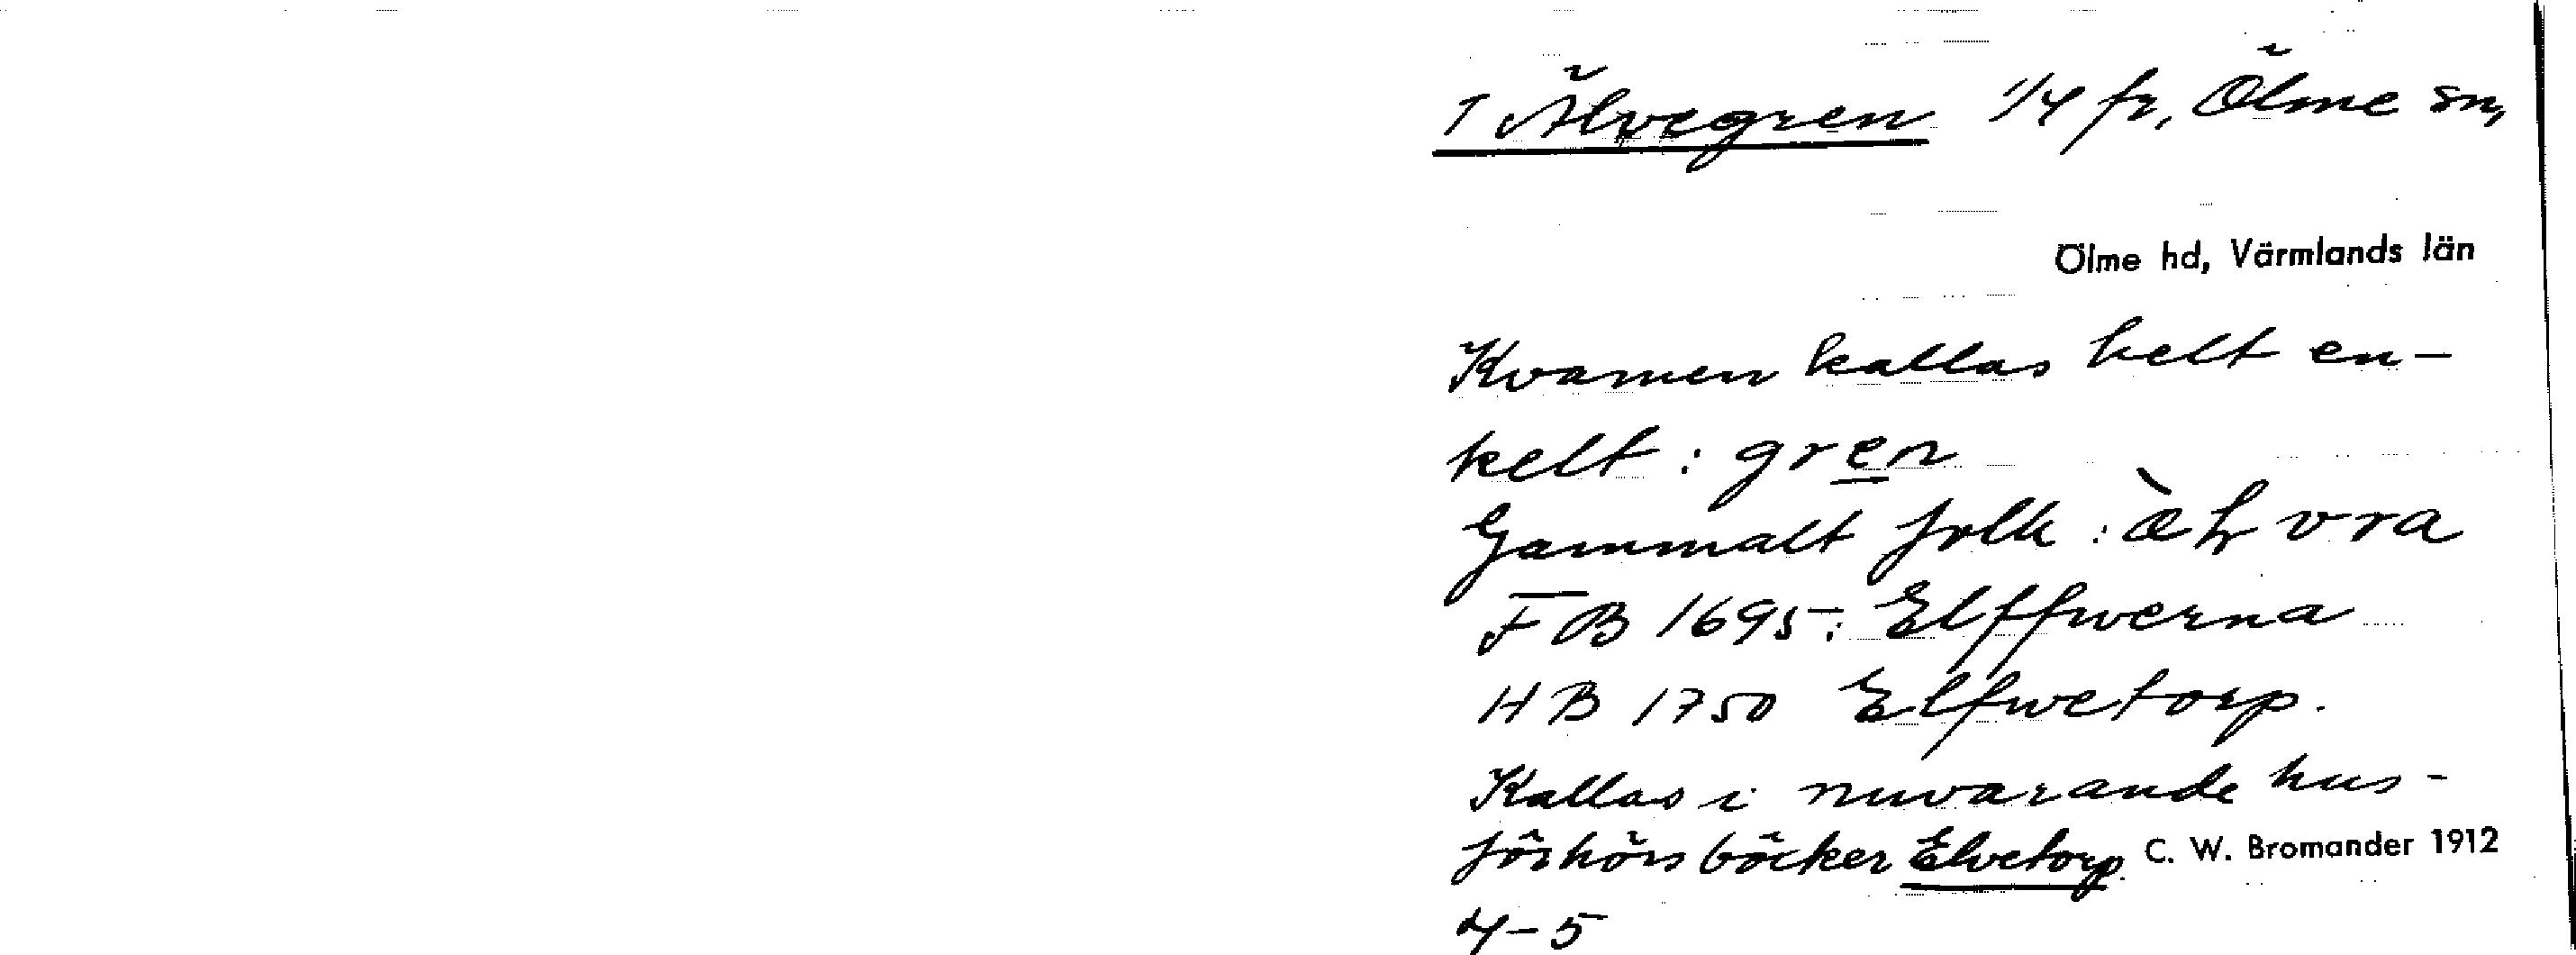 1 Älvegren 1/4 fr, Ölme sn,
Ölme hd, Värmlands län
Kvarnen kallas helt en-
kelt: gren
Gammalt folk: vra
FB 1695: Elffwerna
HB 1750 Elfwetorp.
Kallas i nuvarande hus-
förhörsböcker Elvetorp. C. W. Bromander 1912
4-5